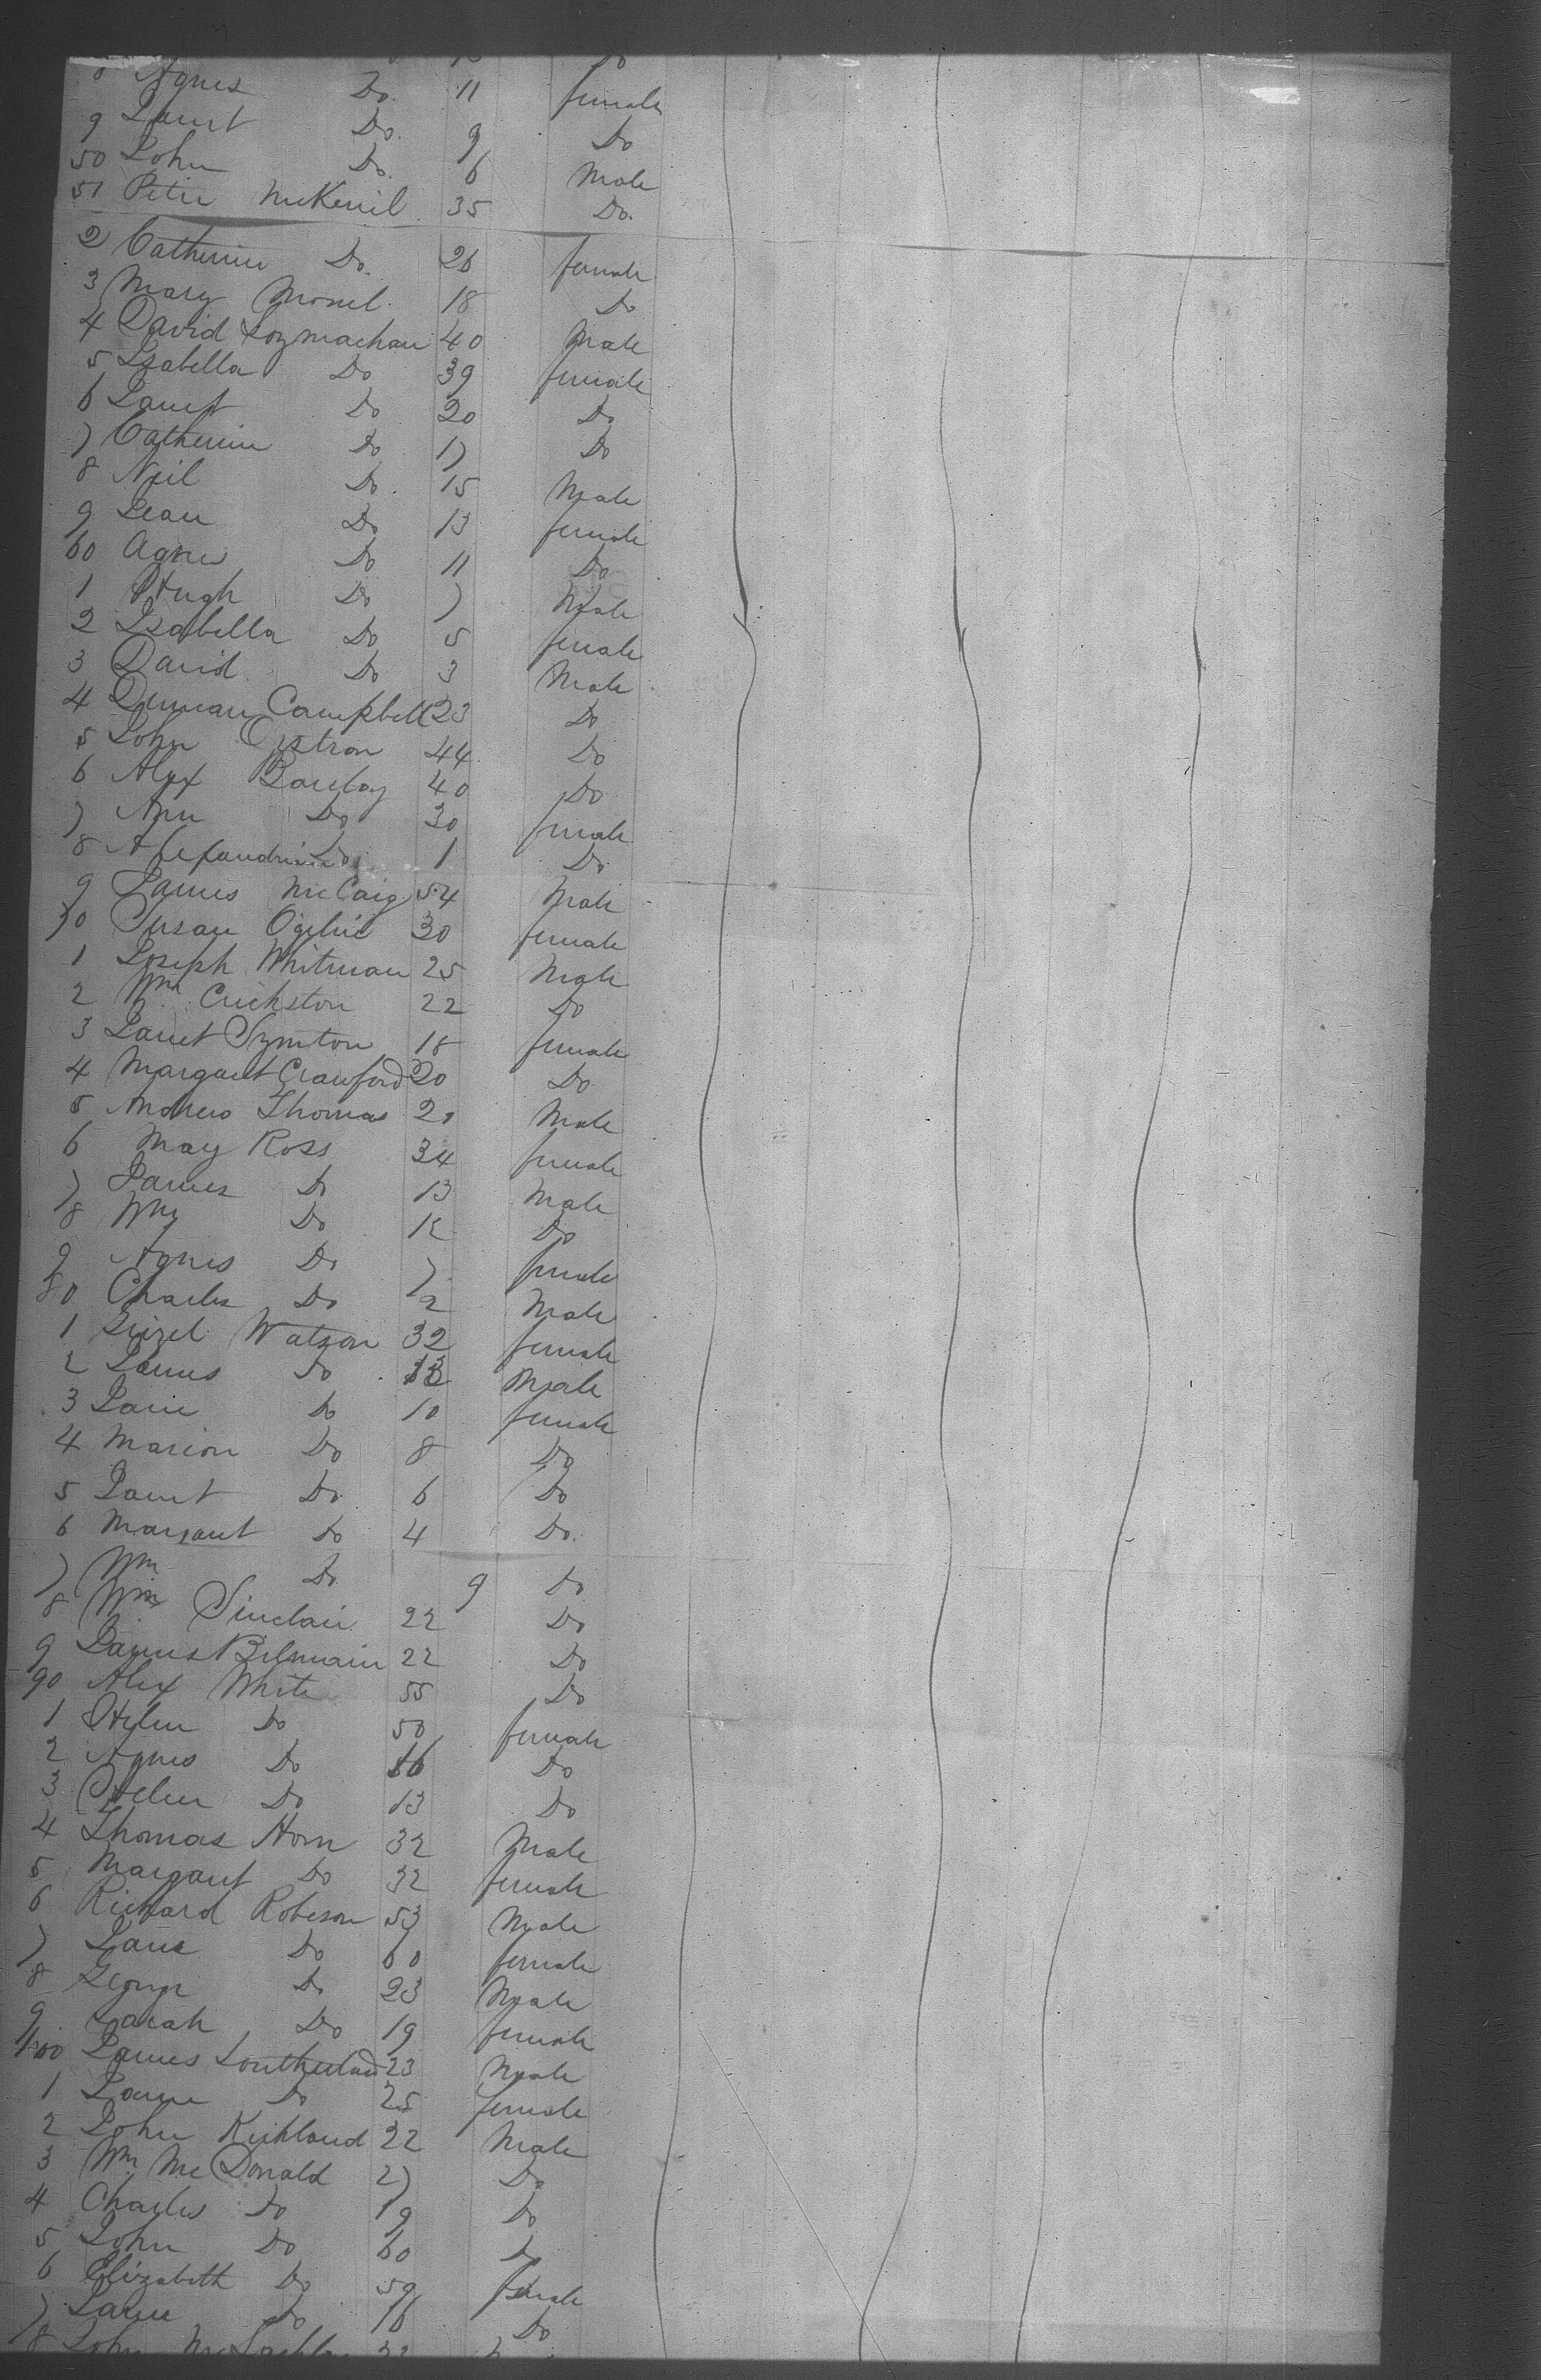 8 Agnes Do. 11 female
9 Janet Do. 9 Do
50 John Do. 6 Male
51 Peter McKenil 35 Do.
2 Catherine Do. 26 female
3 Mary 18 Do
4 David 40 Male
5 Isabella Do 39 female
6 Janet Do 20 Do
7 Catherine Do 17 Do
8 Neil Do 15 Male
9 Jean Do 13 female
60 Agnes Do 11 Do
1 Hugh Do 7 Male
2 Isabella Do 5 female
3 David Do 3 Male
4 Duncan Campbell 23 Do
5 John 44 Do
6 Alex Barclay 40 Do
7 Ann Do 30 female
8 Alexandrina Do 1 Do
9 James McCaig 54 Male
70 Susan Ogilvie 30 female
1 Joseph Whitman 25 Male
2 Wm Crichston 22 Do
3 Janet Symton 18 female
4 Margaret Crawford 20 Do
5 Andrew Thomas 20 Male
6 May Ross 34 female
7 James Do 13 Male
8 Wm Do 12 Do
9 Agnes Do 7 female
80 Charles Do 2 Male
1 Grizel Watson 32 female
2 James Do 13 Male
3 Jane Do 10 female
4 Marion Do 8 Do
5 Janet Do 6 Do
6 Margaret Do 4 Do.
7 Wm Do 9 Do
8 Wm Sinclair 22 Do
9 James 22 Do
90 Alex White 55 Do
1 Helen Do 50 female
2 Agnes Do 16 Do
3 Helen Do 13 Do
4 Thomas Horn 32 Male
5 Margaret Do 32 female
6 Richard Robeson 53 Male
7 Jane Do 60 female
8 George Do 23 Male
9 Sarah Do 19 female
100 James Southerland 23 Male
1 Do 25 female
2 John Kirkland 22 Male
3 Wm McDonald 27 Do
4 Charles Do 19 Do
5 John Do 60 Do
6 Elizabeth Do 59 female
7 Jane Do 16 Do
8 John McLachlan